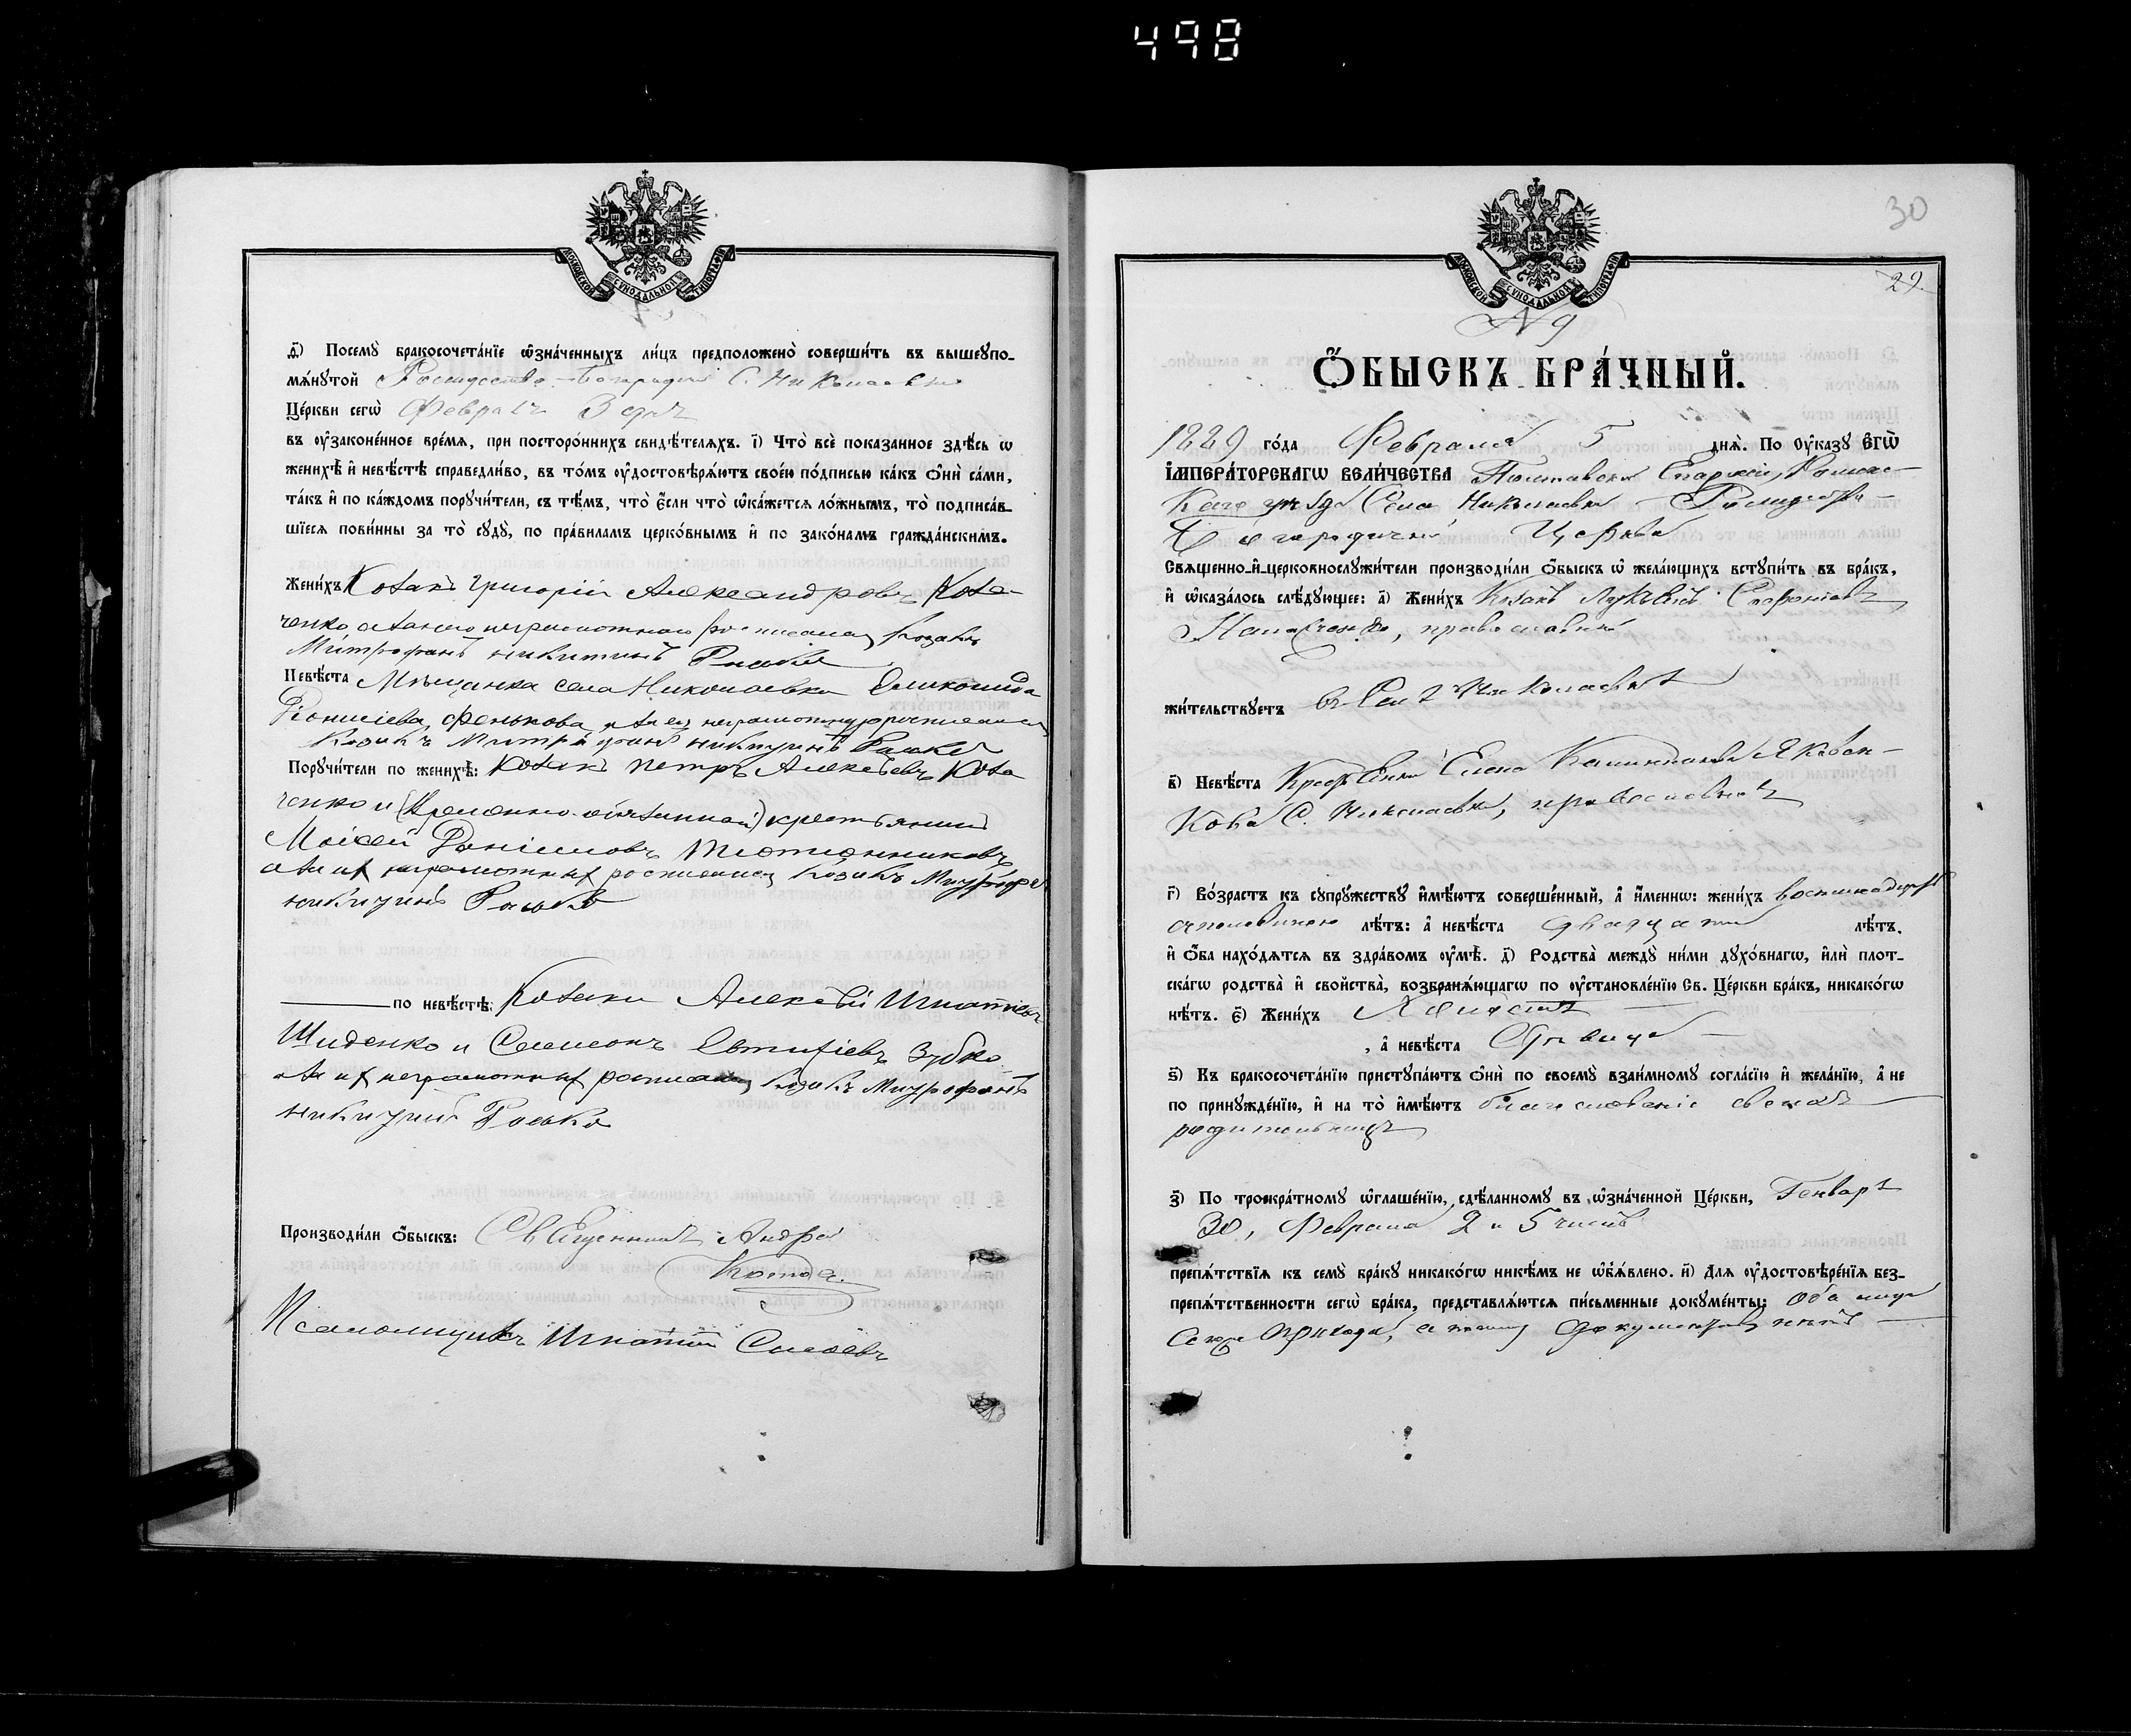 498
МОСКОВСКОЙ СѴНОДАЛЬНОЙ ТИПОГРАФІИ
д҃і) Посемꙋ̀ бракосочета́нїе ѡ҆зна́ченныхъ ли́цъ предположено̀ соверши́ть въ вышеꙋпо-
мѧ́нꙋтой Рождество-Богородичной С. Николаевки
Це́ркви сегѡ̀ Февраля 3 дня
въ ᲂу҆законе́нное вре́мѧ, при посторо́ннихъ свидѣ́телѧхъ. і҃) Что̀ всѐ показанное здѣ́сь ѡ
женихѣ̀ и҆ невѣ́стѣ справедли́во, въ то́мъ ᲂу҆достовѣрѧ́ютъ свое́ю по́дписью ка́къ ѻ҆нѝ са́ми,
та́къ и҆ по ка́ждомъ порꙋчи́тели, съ тѣ́мъ, что̀ є҆́сли что̀ ѡ҆ка́жетсѧ ло́жнымъ, то̀ подписа́в-
шїесѧ пови́нны за то̀ сꙋдꙋ̀, по пра́виламъ церко́внымъ и҆ по зако́намъ гражда́нскимъ.
Жени́хъ Козакъ Григорій Александровъ Коза-
ченко а за него неграмотнаго росписался Козакъ
Митрофанъ Никитинъ Рашко
Невѣ́ста Мѣщанка села Николаевки
Діонисіева Фенькова, а за ея неграмотную росписался
Козакъ Митрофанъ Никитинъ Рашко
Порꙋчи́тели по женихѣ̀: Козакъ Петръ Алексѣевъ Коза
ченко и (Временно-обязанный) крестьянинъ
Моисей Даніиловъ
а за их неграмотных росписался Козакъ Митрофанъ
Никитинъ Рашко
по невѣ́стѣ: Козаки Алексѣй Игнатіевъ
Шиденко и Самсонъ Евтихіевъ Зубко
а за их неграмотных росписался Козакъ Митрофанъ
Никитинъ Рашко
Производи́ли ѻ҆́быскъ: Священникъ Андрей
Псаломщикъ Игнатій
30
29
МОСКОВСКОЙ СѴНОДАЛЬНОЙ ТИПОГРАФІИ
N 9
Ѻ҆́БЫСКЪ БРА́ЧНЫЙ.
1889 го́да Февраля 5 днѧ̀. По ᲂу҆казꙋ Є҆ГѠ̀
І҆МПЕРА́ТОРСКАГѠ ВЕЛИ́ЧЕСТВА Полтавской Епархіи, Ромен-
скаго уѣзда Села Николаевки Рождество-
Богородичной Церкви
Свѧщенно-и҆-церковнослꙋжи́тели производи́ли ѻ҆́быскъ ѡ҆ жела́ющихъ встꙋпи́ть въ бра́къ,
и҆ ѡ҆каза́лось слѣ́дꙋющее: а҃) Жени́хъ Козакъ
православный
жи́тельствꙋетъ въ Селѣ Николаевкѣ
в҃) Невѣ́ста Елена Яковен-
кова С. Николаевки, православная
г҃) Во́зрастъ къ сꙋпрꙋ́жествꙋ и҆мѣ́ютъ соверше́нный, а҆ и҆́меннѡ: жени́хъ восемнадцать
съ половиною лѣ́тъ: а҆ невѣ́ста двадцати лѣ́тъ,
и҆ ѻ҆́ба нахо́дѧтсѧ въ здра́вомъ ᲂу҆мѣ̀. д҃) Родства̀ междꙋ̀ ни́ми дꙋхо́внагѡ, и҆лѝ плот-
ска́гѡ родства̀ и҆ сво́йства̀, возбранѧ́ющагѡ по ᲂу҆становле́нїю Св. Це́ркви бра́къ, никако́гѡ
нѣ́тъ. є҃) Жени́хъ Холостъ
, а҆ невѣ́ста Дѣвица
ѕ҃) Къ бракосочета́нїю пристꙋпа́ютъ ѻ҆нѝ по своемꙋ̀ взаи́мномꙋ согла́сїю и҆ жела́нїю, а҆ не
по принꙋжде́нїю, и҆ на то̀ и҆мѣ́ютъ благословеніе своихъ
родительницъ
з҃) По троекра́тномꙋ ѡ҆глаше́нїю, сдѣ́ланномꙋ въ ѡ҆зна́ченной Це́ркви, Генваря
30, Февраля 2 и 5 чиселъ
препѧ́тствїѧ къ семꙋ̀ бра́кꙋ никако́гѡ никѣ́мъ не ѡ҆б̾ѧ́влено. и҃) Для ᲂу҆достовѣре́нїѧ без-
препѧ́тственности сегѡ̀ бра́ка, представлѧ́ютсѧ пи́сьменные докꙋме́нты: Оба лица
сего прихода, а потому документовъ нѣтъ